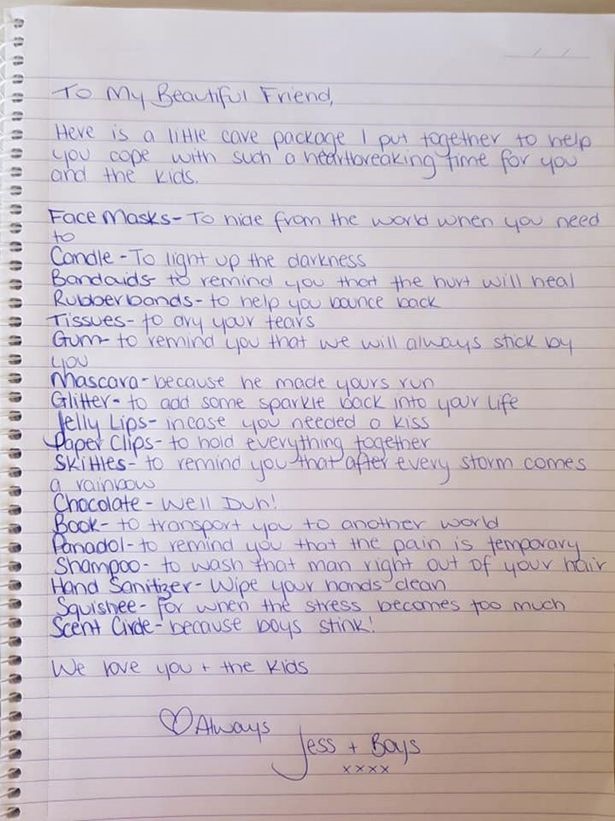 To My Beautiful Friend,
Here is a little care package I put together to help
you cope with such a heartbreaking time for you
and the kids.
Face Masks - To hide from the world when you need
to
Candle - To light up the darkness
Bandaids - to remind you that the hurt will heal
Rubberbands - to help you bounce back
Tissues - to dry your tears
Gum - to remind you that we will always stick by
you
Mascara - because he made yours run
Glitter - to add some sparkle back into your life
Jelly Lips - incase you needed a kiss
Paper Clips - to hold everything together
Skittles - to remind you that after every storm comes
a rainbow
Chocolate - Well Duh!
Book - to transport you to another world
Panadol - to remind you that the pain is temporary
Shampoo - to wash that man right out of your hair
Hand Sanitizer - Wipe your hands clean
Squishee - For when the stress becomes too much
Scent Circle - because boys stink!
We love you + the kids
♡ Always
Jess + Boys
xxxx